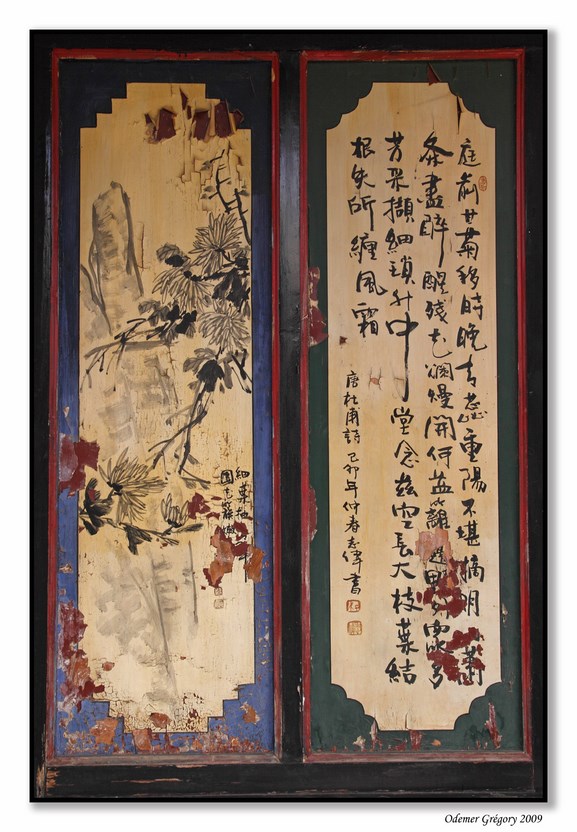 庭前甘菊移時晚青蕊重陽不堪摘明萧
条盡醉醒残花爛熳開何益籬邊野外眾多
芳采擷細瑣升中堂念茲空長大枝葉結
根失所纏風霜
唐杜甫詩己卯年仲春志偉書
細葉抽
圓花簇嫩
Odemer Grégory 2009